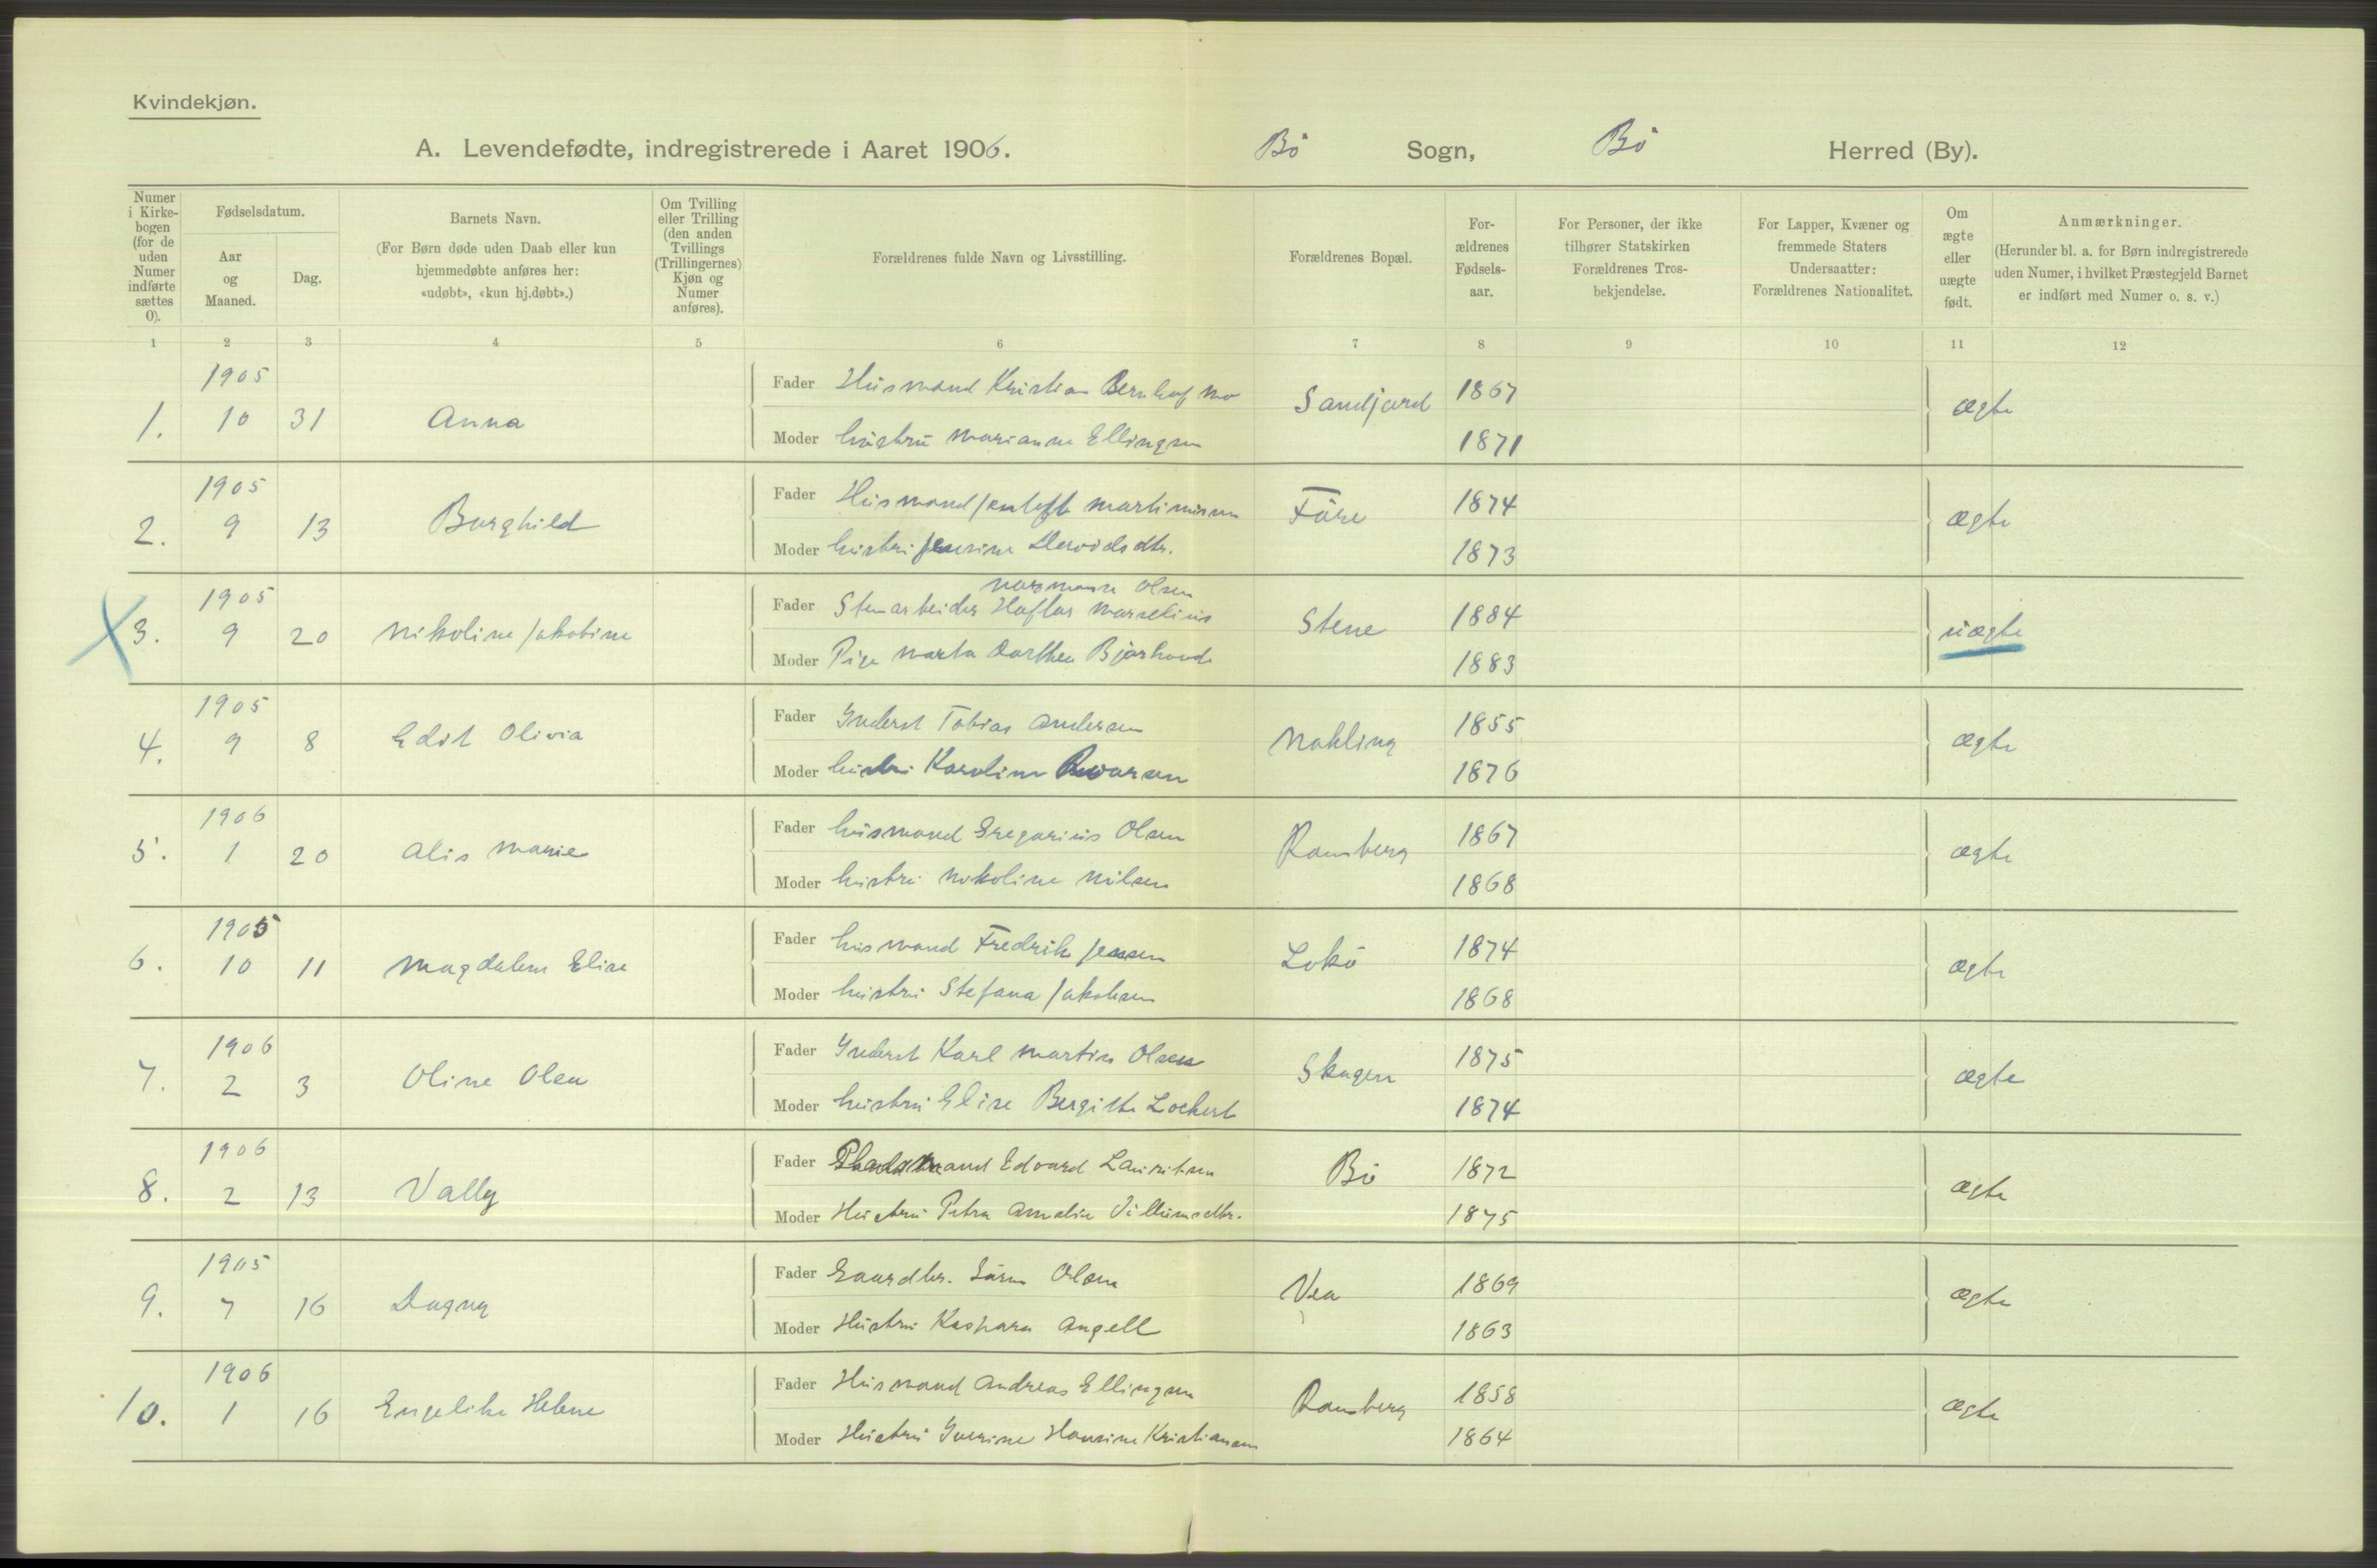 Kvindekjøn.
A. Levendefødte, indregistrerede i Aaret 1906. Bö Sogn, Bö Herred (By).
Numer i Kirke-bogen (for de uden Numer indførte sættes 0).
Fødselsdatum.
Aar og Maaned.
Dag.
Barnets Navn.
(For Børn døde uden Daab eller kun hjemmedøbte anføres her: «udøbt», «kun hj.døbt».)
Om Tvilling eller Trilling (den anden Tvillings (Trillingernes) Kjøn og Numer anføres).
Forældrenes fulde Navn og Livsstilling.
Forældrenes Bopæl.
For-ældrenes Fødsels-aar.
For Personer, der ikke tilhører Statskirken Forældrenes Tros-bekjendelse.
For Lapper, Kvæner og fremmede Staters Undersaatter: Forældrenes Nationalitet.
Om ægte eller uægte født.
Anmærkninger.
(Herunder bl. a. for Børn indregistrerede uden Numer, i hvilket Præstegjeld Barnet er indført med Numer o. s. v.)
1 2 3 4 5 6 7 8 9 10 11 12
1905
1. 10 31 Anna
Fader Husmand Kristian Bernhof Mo Sandjord 1867 ægte
Moder hustru Marianne Ellingsen 1871
1905
2. 9 13 Borghild
Fader Husmand Jentoft Martinusen Före 1874 ægte
Moder hustru Jensine 1873
1905
3. 9 20 Nikoline Jakobine
Normann Olsen
Fader Stenarbeider Haflar Marselius Stene 1884 uægte
Moder Pige Marta Dorthea 1883
1905
4. 9 8 Edit Olivia
Fader Inderst Tobias Andersen 1855 ægte
Moder hustru Karoline 1876
1906
5. 1 20 Alis Marie
Fader husmand Gregorius Olsen Ramberg 1867 ægte
Moder hustru Nikoline Nilsen 1868
1905
6. 10 11 Magdalene Elise
Fader husmand Fredrik Jensen Lokö 1874 ægte
Moder hustru Stefana Jakobsen 1868
1906
7. 2 3 Oline Olea
Fader Inderst Karl Martin Olsen Skagen 1875 ægte
Moder hustru Elise Bergitte Lockert 1874
1906
8. 2 13 Vally
Fader Edvard Lauritsen Bö 1872 ægte
Moder Hustru Petra Amalie Villumsdtr. 1875
1905
9. 7 16 Dagny
Fader Gaardbr. Sören Olsen Vea 1869 ægte
Moder Hustru Kaspara Angell 1863
1906
10. 1 16 Engelike Helene
Fader Husmand Andreas Ellingsen Ramberg 1858 ægte
Moder Hustru Iverine Hansine Kristiansen 1864